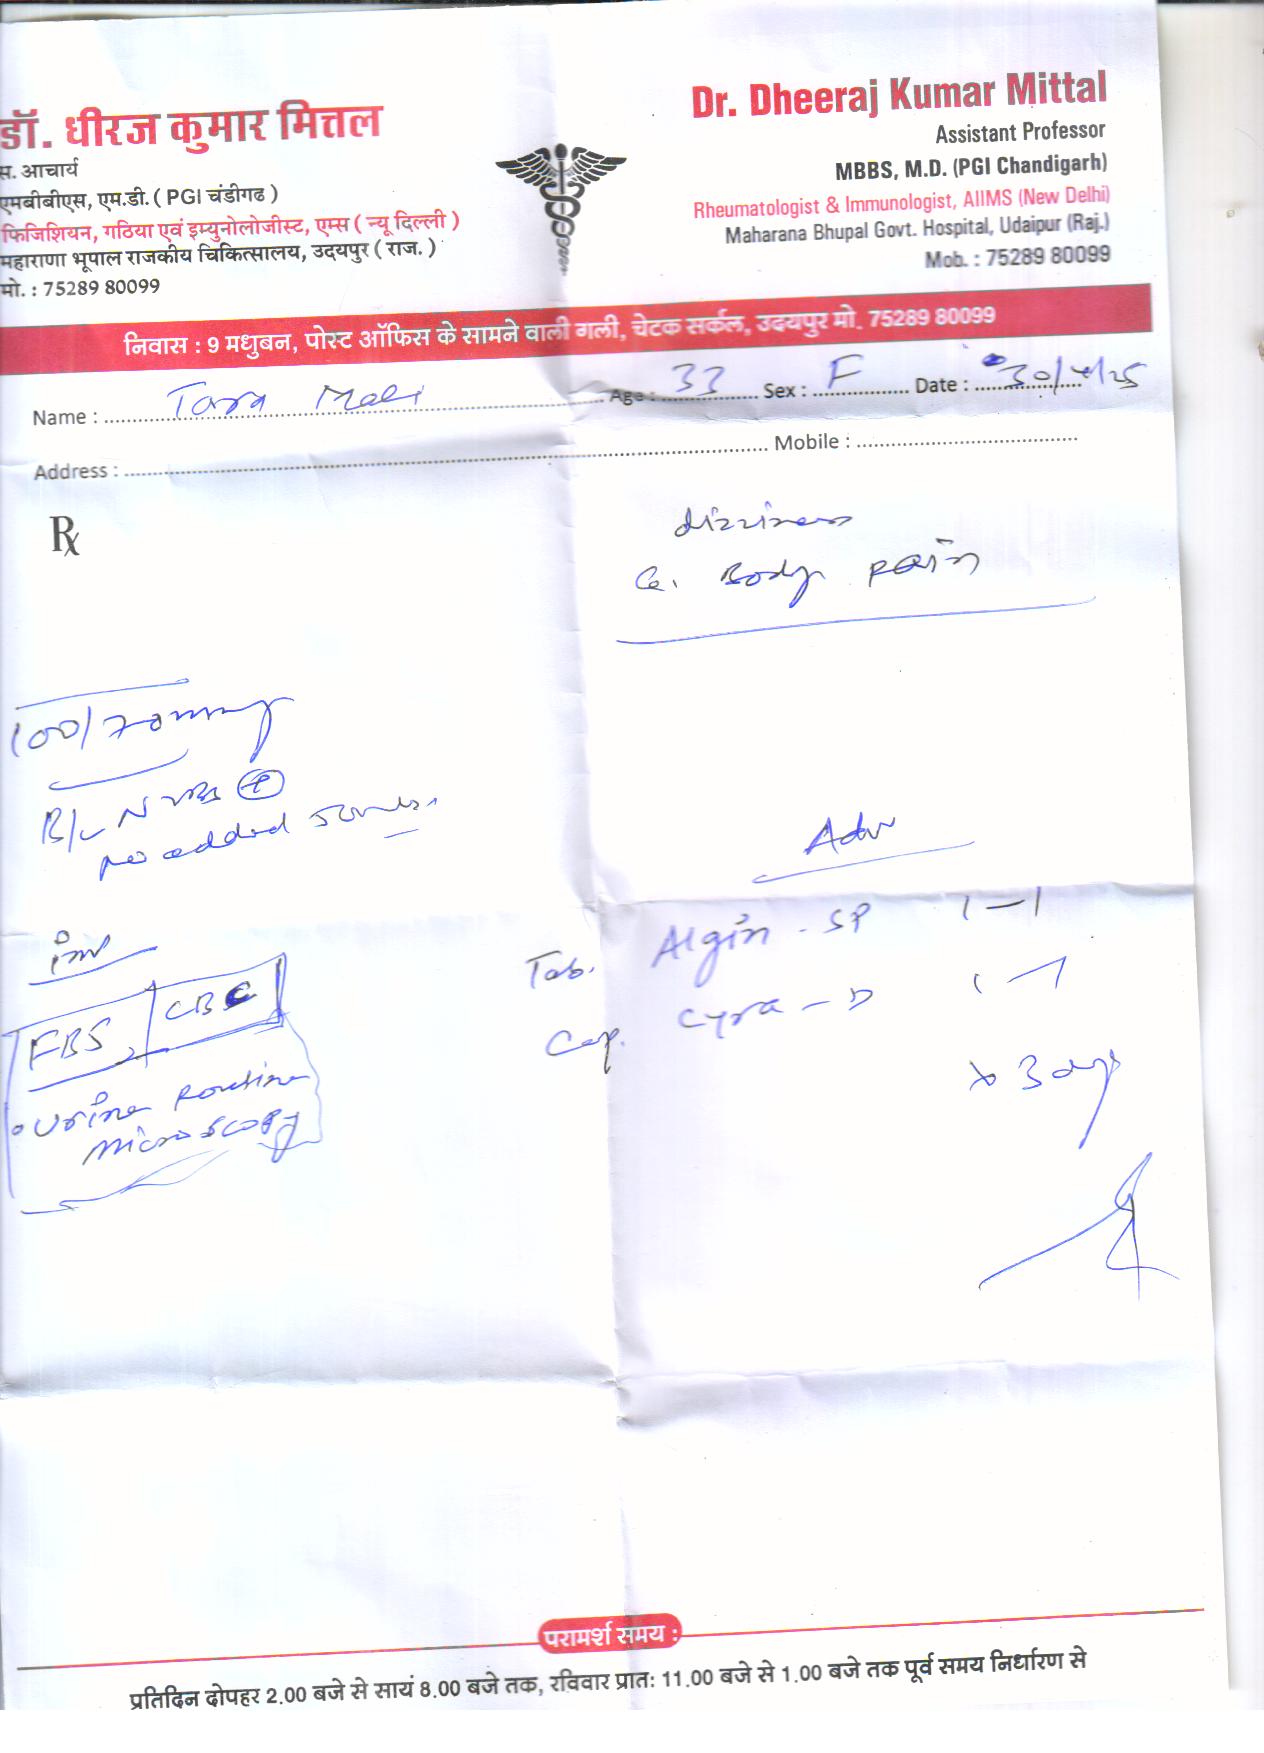 डॉ. धीरज कुमार मित्तल
स. आचार्य
एमबीबीएस, एम.डी. ( PGI चंडीगढ )
फिजिशियन, गठिया एवं इम्युनोलोजीस्ट, एम्स ( न्यू दिल्ली )
महाराणा भूपाल राजकीय चिकित्सालय, उदयपुर ( राज. )
मो. : 75289 80099
Dr. Dheeraj Kumar Mittal
Assistant Professor
MBBS, M.D. (PGI Chandigarh)
Rheumatologist & Immunologist, AIIMS (New Delhi)
Maharana Bhupal Govt. Hospital, Udaipur (Raj.)
Mob. : 75289 80099
निवास : 9 मधुबन, पोस्ट ऑफिस के सामने वाली गली, चेटक सर्कल, उदयपुर मो. 75289 80099
Name : Tara Mali Age : 33 Sex : F Date : 30/4/25
Address : Mobile :
Rx
dizziness
Body pain
100/70 mmHg
B/L NVBS +
no added sounds
Adv
Tab. Algin - SP 1 — 1
Cap. Cyra - D 1 — 1
x 3 days
inv
FBS, CBC
Urine Routine
Microscopy
परामर्श समय :
प्रतिदिन दोपहर 2.00 बजे से सायं 8.00 बजे तक, रविवार प्रात: 11.00 बजे से 1.00 बजे तक पूर्व समय निर्धारण से